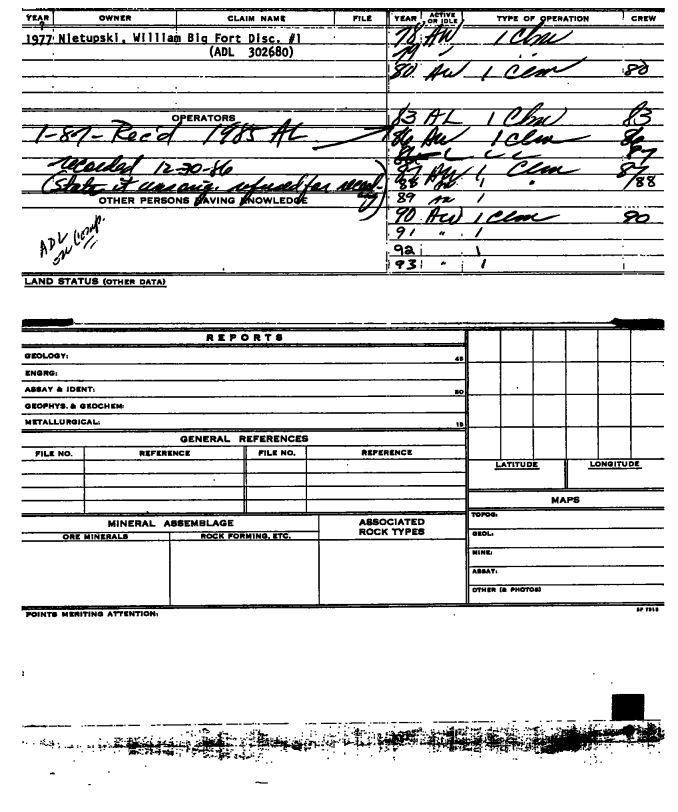 YEAR OWNER CLAIM NAME FILE YEAR ACTIVE OR IDLE TYPE OF OPERATION CREW
?
1977 Nietupski, William Big Fort Disc. #1 78 AW 1 Clm
(ADL 302680) 79 "
80 AW 1 Clm 80
OPERATORS 83 AL 1 Clm 83
1-87- Rec'd 1985 AL 86 AW 1 Clm 86
87
recorded 12-30-86 87 AW 1 Clm 87
(State it unsang. refused for record- 88 1 " /88
OTHER PERSONS HAVING KNOWLEDGE 89 1
90 AW 1 Clm 90
ADL on Comp. 91 " 1
92 1
93 " 1
LAND STATUS (OTHER DATA)
REPORTS
GEOLOGY: 45
ENGRG:
ASSAY & IDENT: 50
GEOPHYS. & GEOCHEM:
METALLURGICAL: 15
GENERAL REFERENCES
FILE NO. REFERENCE FILE NO. REFERENCE
LATITUDE LONGITUDE
MAPS
MINERAL ASSEMBLAGE ASSOCIATED ROCK TYPES
ORE MINERALS ROCK FORMING, ETC.
TOPOG:
GEOL:
MINE:
ASSAY:
OTHER (& PHOTOS)
POINTS MERITING ATTENTION: SP 7915